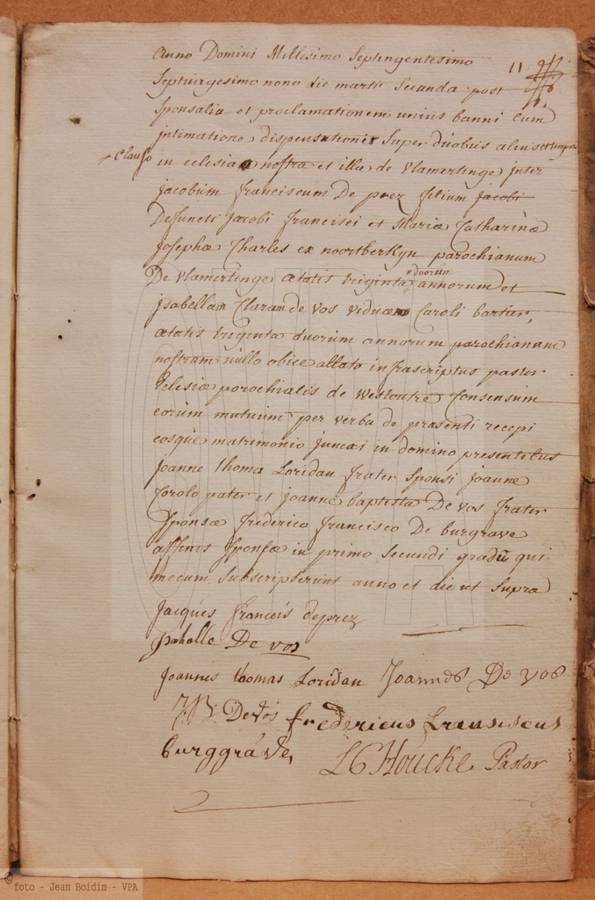 11
Anno Domini Millesimo Septingentesimo
Septuagesimo nono die martii Secunda post
Sponsalia et proclamationem unius banni Cum
intimatione dispensationis Super duobus aliis et tempore
Clauso
in eclesia nostra et illa de Vlamertinge inter
jacobum franciscum De prez filium jacobi
Defuncti Jacobi francisci et Maria Catharina
Josepha Charles ex noortberkyn parochianum
De Vlamertinge ætatis triginta duorum annorum et
jsabellam Claram de vos viduam Caroli bartier,
ætatis triginta duorum annorum parochianam
nostram nullo obice allato infrascriptus pastor
Eclesiæ parochialis de Westoutre Consensum
eorum mutuum per verba de præsenti recepi
eosque matrimonio junxi in domino presentibus
joanne thoma Loridan frater Sponsi joanne
Carolo pater et joanne baptista De vos frater
Sponsæ frederico francisco De burgrave
affinis Sponsæ in primo Secundi gradu qui
mecum Subscripserunt anno et die ut Supra
Jacques francois deprez
jsabelle De vos
joannes thomas Loridan Joannes De vos
J B: De vos fredericus franciscus
burggrave, L C Houcke Pastor
© foto - Jean Boidin - VPA